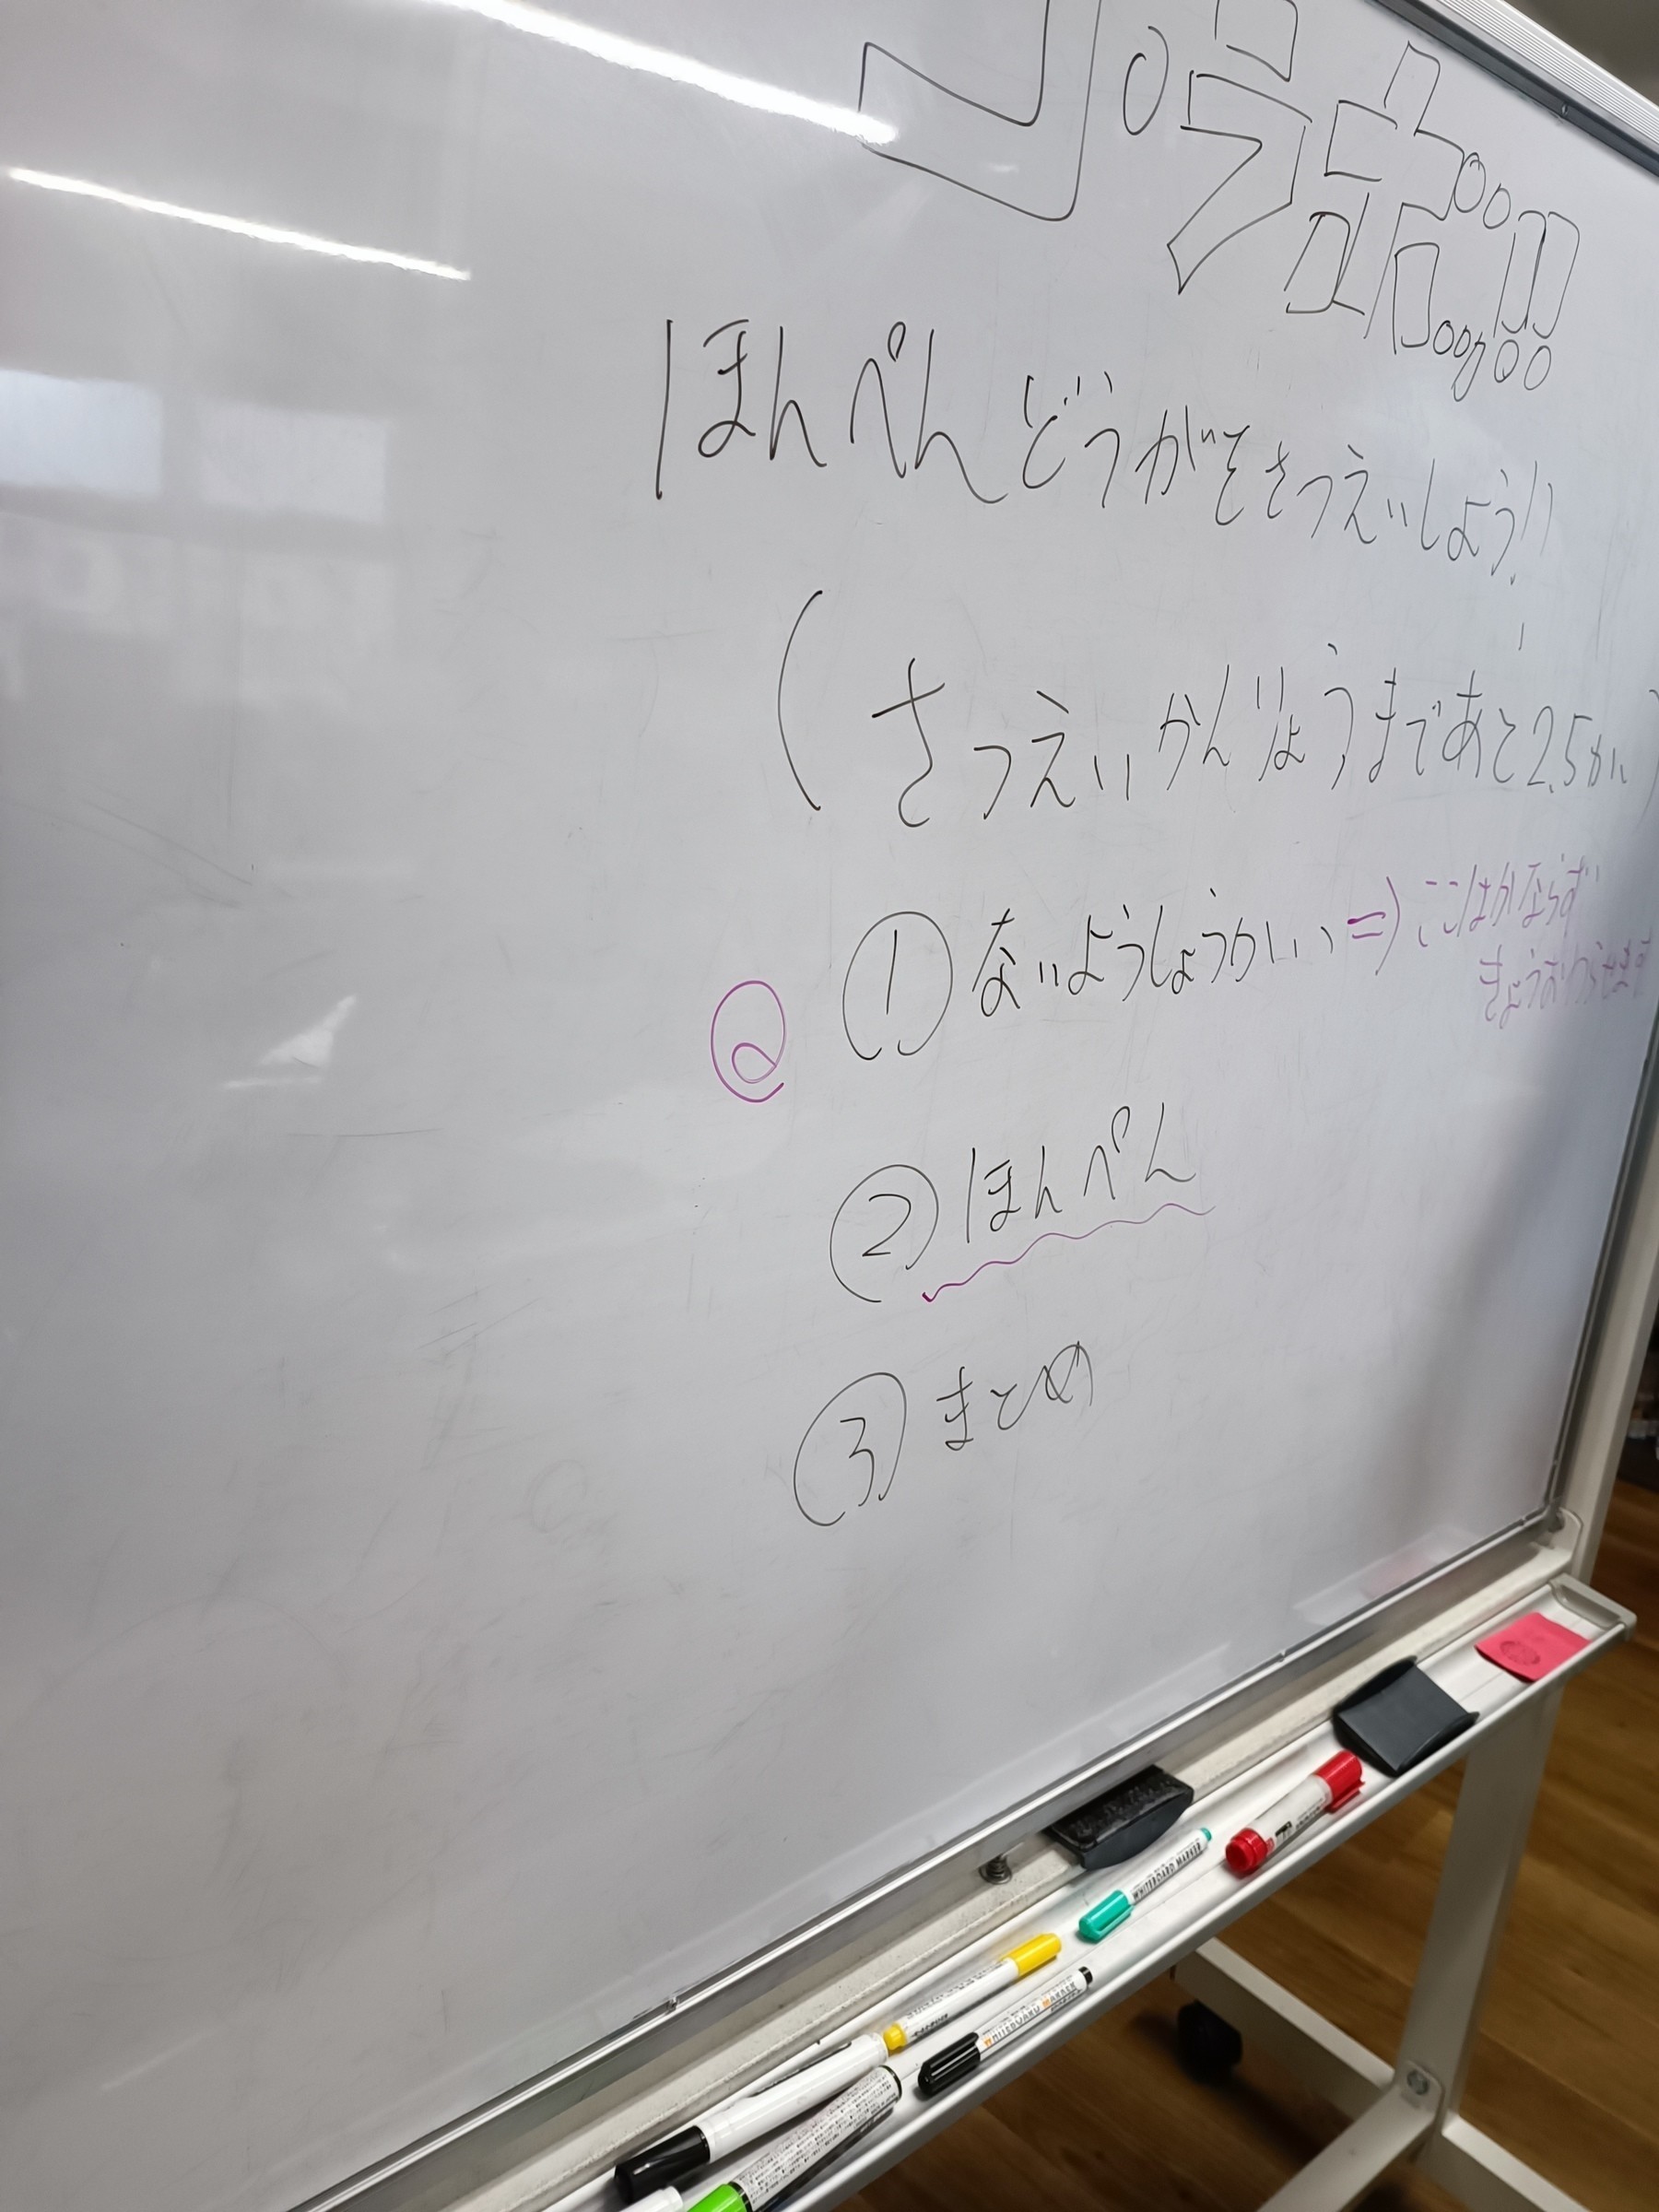 ほんぺんどうがをさつえいしよう!!
(さつえいかんじょうまであと2.5かい)
①ないようしょうかい⇒ここはかならず
きょうおわらせます
②ほんぺん
③まとめ
WHITEBOARD MARKER
WHITEBOARD MARKER